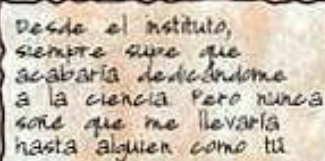 Desde el instituto,
siempre supe que
acabaría dedicándome
a la ciencia. Pero nunca
soñé que me llevaría
hasta alguien como tú.